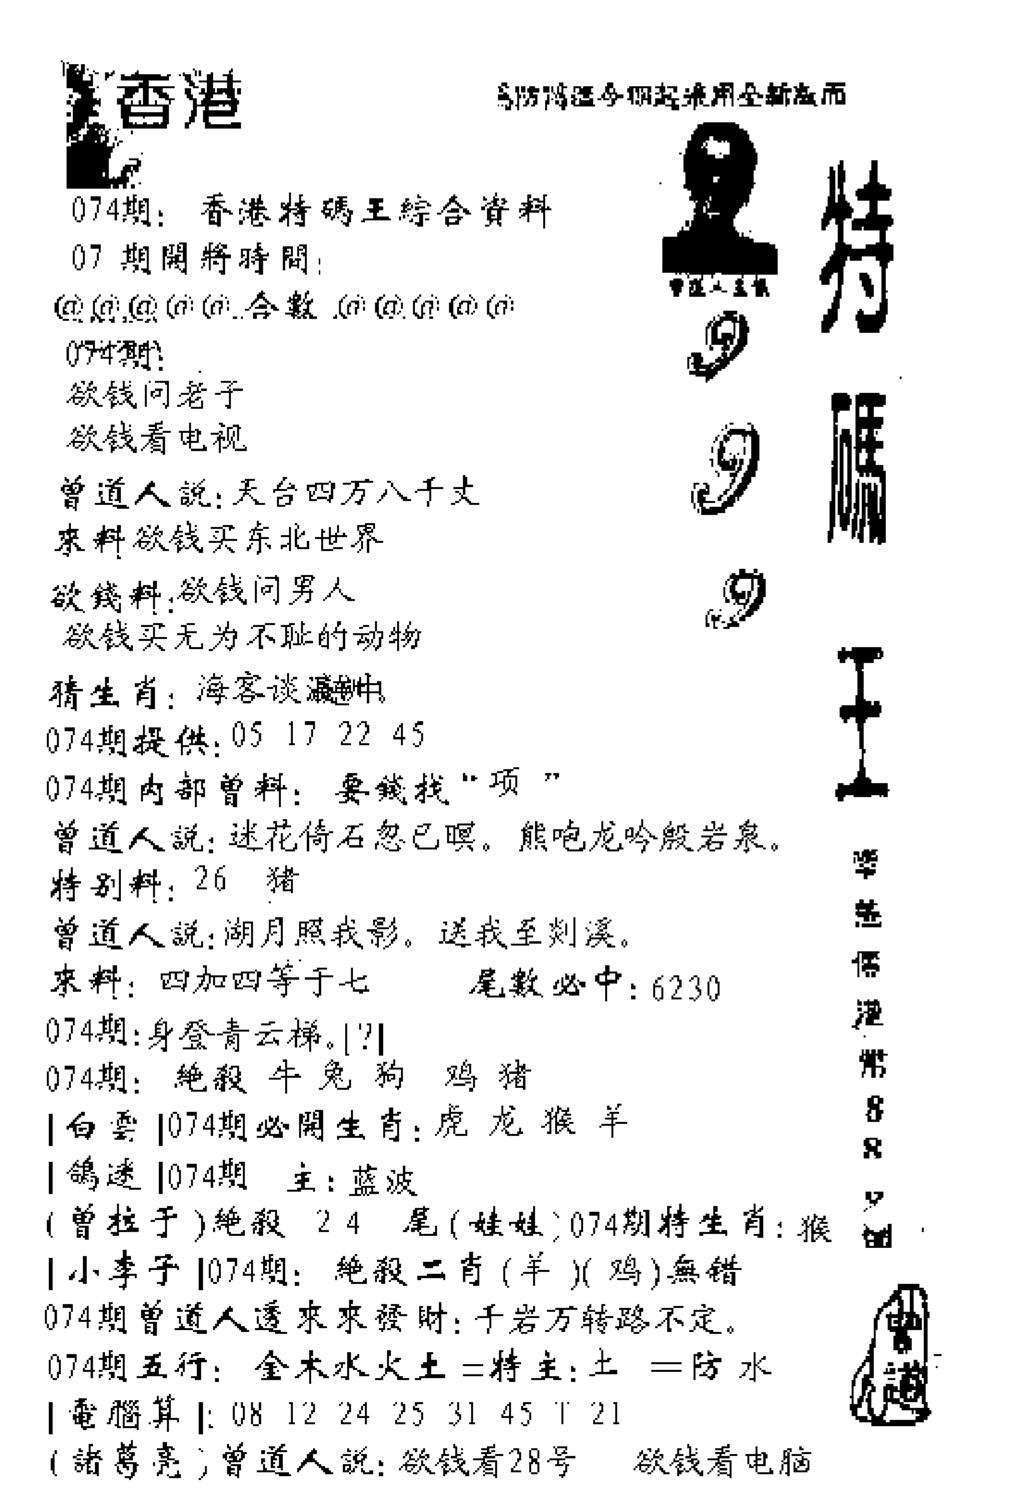 香港
074期：香港特碼王綜合資料
07 期開將時間：
@@@@@合數@@@@@
074期：
欲钱问老子
欲钱看电视
曾道人説：天台四万八千丈
來料欲钱买东北世界
欲錢料：欲钱问男人
欲钱买无为不耻的动物
猜生肖：海客谈瀛
074期提供：05 17 22 45
074期内部曾料：要錢找“项 ”
曾道人説：迷花倚石忽已暝。熊咆龙吟殷岩泉。
特别料：26 猪
曾道人説：湖月照我影。送我至剡溪。
來料：四加四等于七 尾數必中：6230
074期：身登青云梯。|?|
074期：絶殺 牛 兔 狗 鸡 猪
|白雲|074期必開生肖：虎 龙 猴 羊
|鴿迷|074期 主：蓝波
(曾拉于)絶殺 2 4 尾(娃娃)074期特生肖：猴
|小李子|074期：絶殺二肖(羊)(鸡)無错
074期曾道人透來來發財：千岩万转路不定。
074期五行：金木水火土=特主：土 =防 水
|電腦算|：08 12 24 25 31 45 T 21
(諸葛亮)曾道人説：欲钱看28号 欲钱看电脑
今期起采用全新版面
曾道人主
999
特碼王
港
8
8
曾道